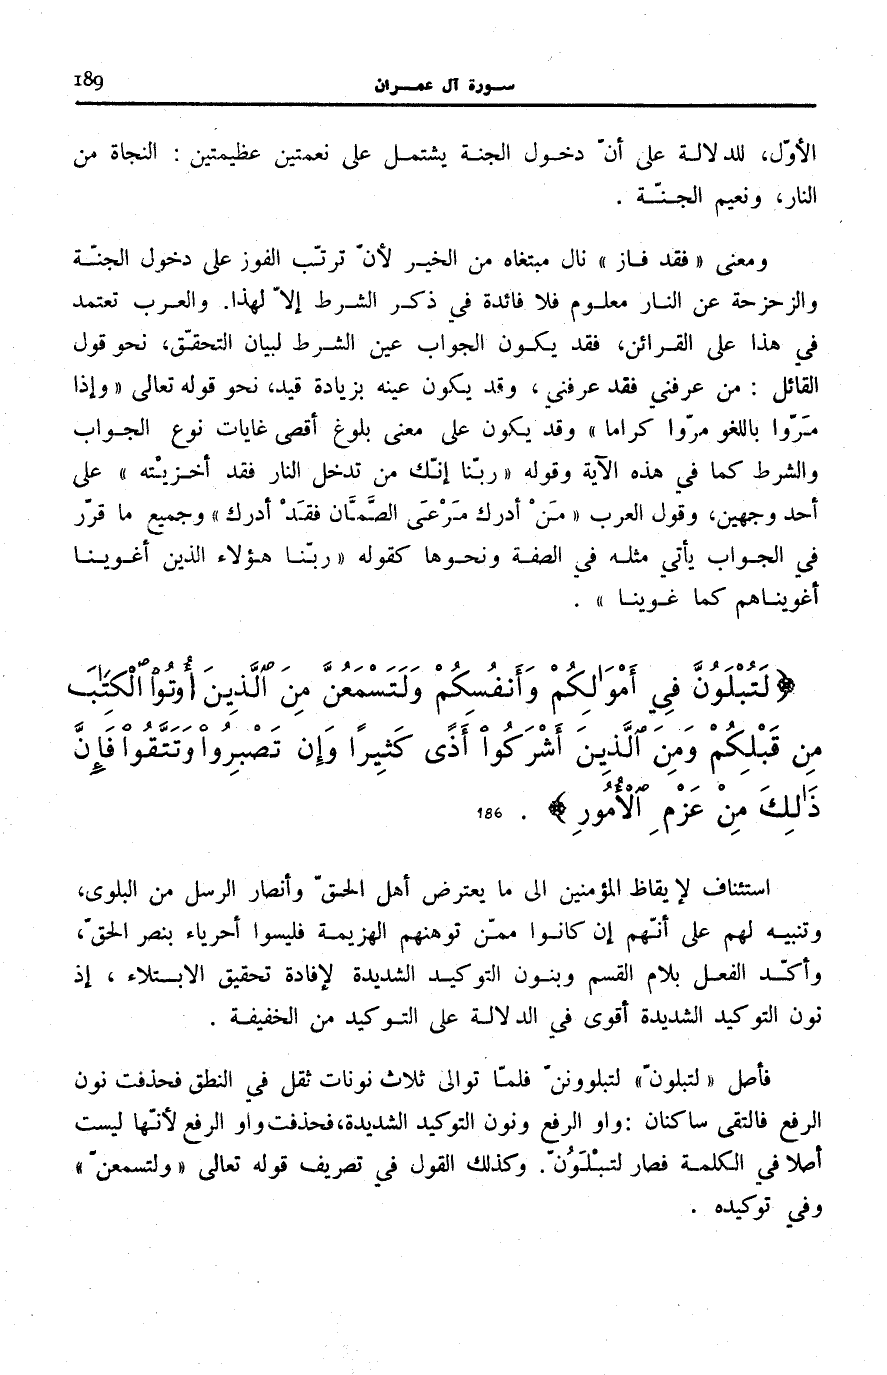 سـورة آل عمـران
189
الأوّل، للدلالـة على أنّ دخـول الجنـة يشتمـل على نعمتين عظيمتين : النجاة من
النار، ونعيم الجـنّـة .
ومعنى « فقد فـاز » نال مبتغاه من الخيـر لأنّ ترتّب الفوز على دخول الجنّـة
والزحزحة عن النـار معلـوم فلا فائدة في ذكـر الشـرط إلاّ لهذا. والعـرب تعتمد
في هذا على القـرائن، فقد يكـون الجواب عين الشـرط لبيان التحقّق، نحو قول
القائل : من عرفني فقد عرفني ، وقد يكون عينه بزيادة قيد، نحو قوله تعالى « وإذا
مَرّوا باللغو مرّوا كراما » وقد يكون على معنى بلوغ أقصى غايات نوع الجـواب
والشرط كما في هذه الآية وقوله « ربّنا إنّك من تدخل النار فقد أخـزيْته » على
أحد وجهين، وقول العرب « مَـنْ أدرك مَـرْعَـى الصَّمَّان فقَـدْ أدرك » وجميع ما قرّر
في الجـواب يأتي مثلـه في الصفـة ونحـوها كقوله « ربّنـا هـؤلاء الذين أغـوينـا
أغوينـاهم كما غـوينـا » .
﴿لَتُبْلَوُنَّ فِي أَمْوَٰلِكُمْ وَأَنفُسِكُمْ وَلَتَسْمَعُنَّ مِنَ ٱلَّذِينَ أُوتُوا۟ ٱلْكِتَٰبَ
مِن قَبْلِكُمْ وَمِنَ ٱلَّذِينَ أَشْرَكُوا۟ أَذًى كَثِيرًا وَإِن تَصْبِرُوا۟ وَتَتَّقُوا۟ فَإِنَّ
ذَٰلِكَ مِنْ عَزْمِ ٱلْأُمُورِ﴾ . 186
استئناف لإيقاظ المؤمنين الى ما يعترض أهل الحقّ وأنصار الرسل من البلوى،
وتنبيـه لهم على أنّـهم إن كانـوا ممّـن توهنهم الهزيمـة فليسوا أحرياء بنصر الحقّ،
وأكّـد الفعـل بلام القسم وبنـون التوكيـد الشديدة لإفادة تحقيق الابـتلاء ، إذ
نون التوكيد الشديدة أقوى في الدلالـة على التـوكيد من الخفيفـة .
فأصل « لتبلونّ» لتبلوونن ّ فلمّـا توالى ثلاث نونات ثقل في النطق فحذفت نون
الرفع فالتقى ساكنان :واو الرفع ونون التوكيد الشديدة،فحذفت واو الرفع لأنّـها ليست
أصلا في الكلمـة فصار لتبْلَـوُنّ. وكذلك القول في تصريف قوله تعالى « ولتسمعنّ »
وفي توكيده .